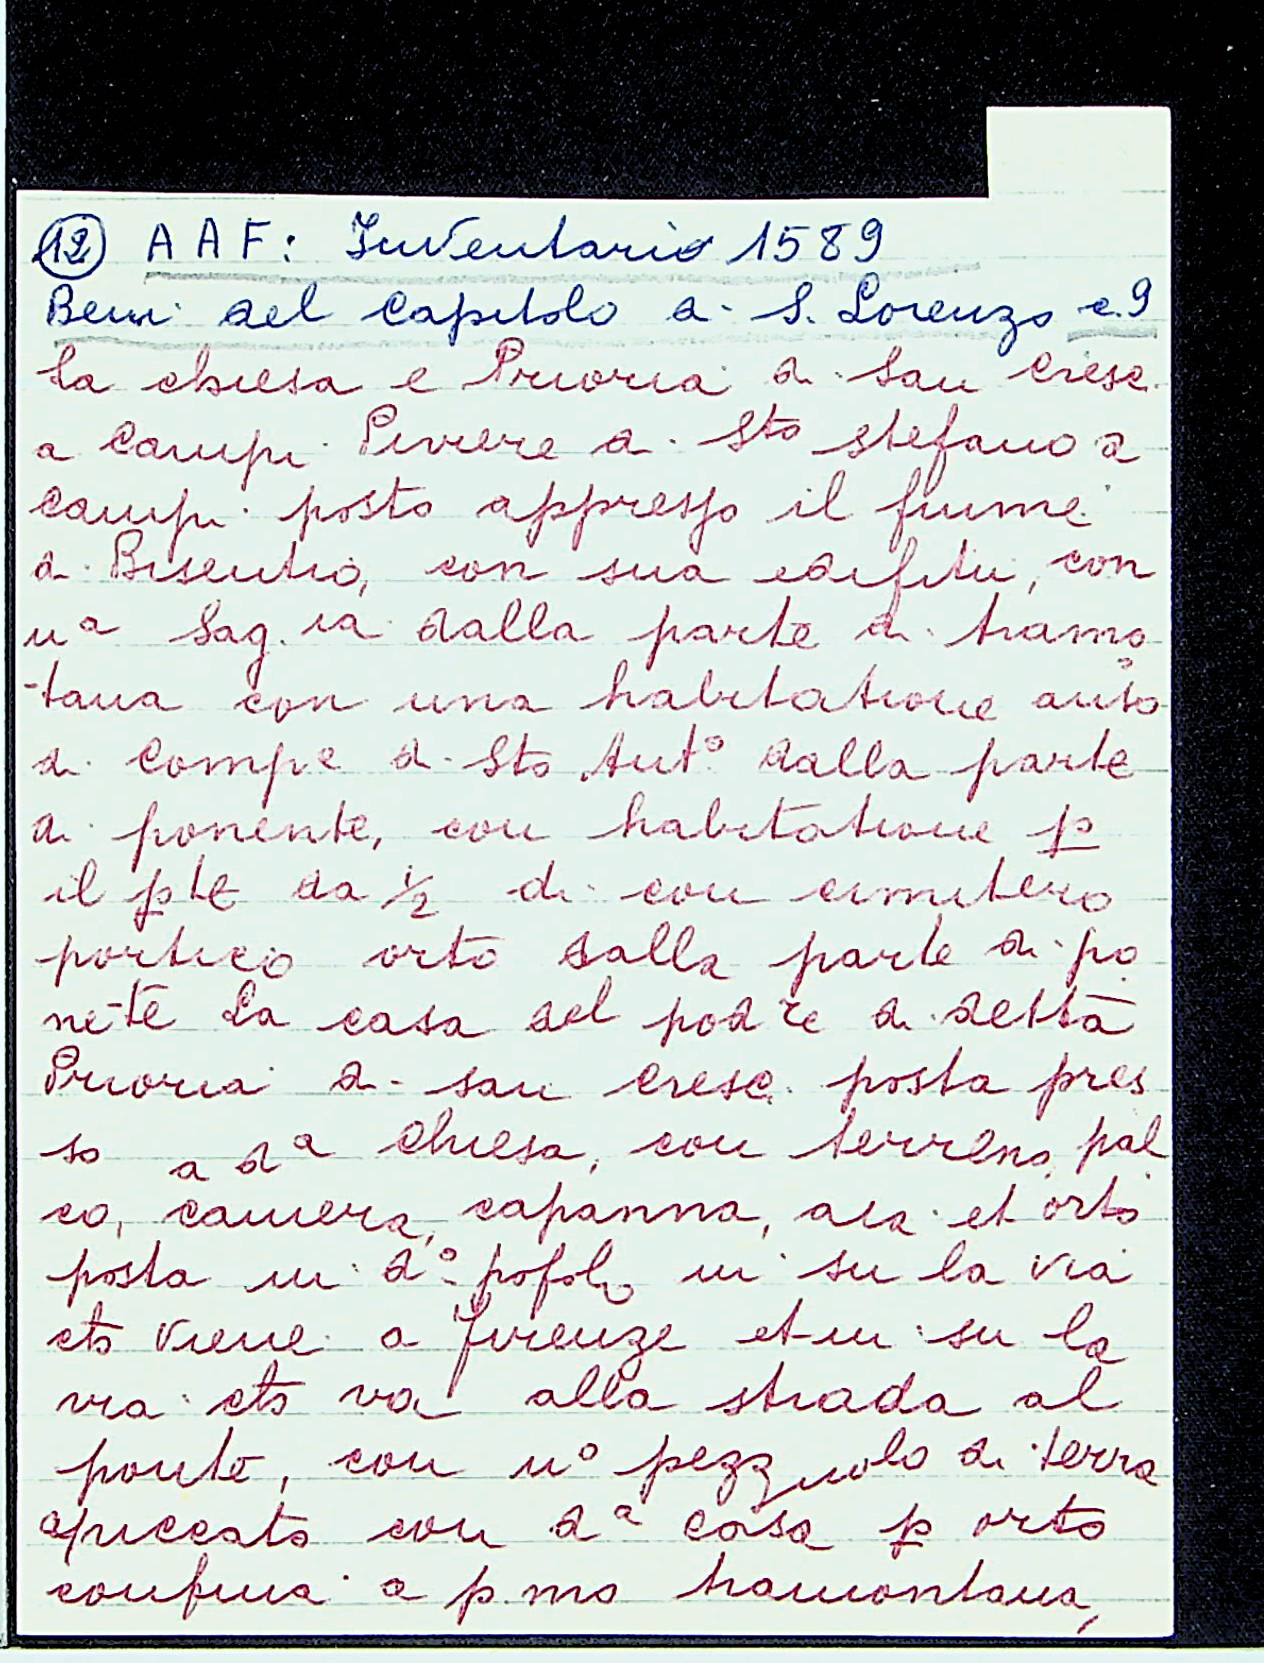 12 AAF: Inventario 1589
Beni del Capitolo di S. Lorenzo c.9
la chiesa e Prioria di San Cresc.
a Campi Piviere di Sto Stefano a
Campi posto appresso il fiume
di Bisentio, con sua edifitii, con
una Sag.ia dalla parte di tramo
-tana con una habitatione
di Comp.e di Sto Ant.o dalla parte
di ponente, con habitatione p
il pte da 1/2 di con cimitero
portico orto dalla parte di po
nete la casa del podre di detta
Prioria di san Cresc. posta pres
so a d.a chiesa, con terreno, pal
co, camera, capanna, aia et orto
posta in d.o popolo in su la via
cto viene a Firenze et in su la
via cto va alla strada al
ponte, con u.o pezzuolo di terra
apiccato con d.a casa p orto
confina a p.mo tramontana,